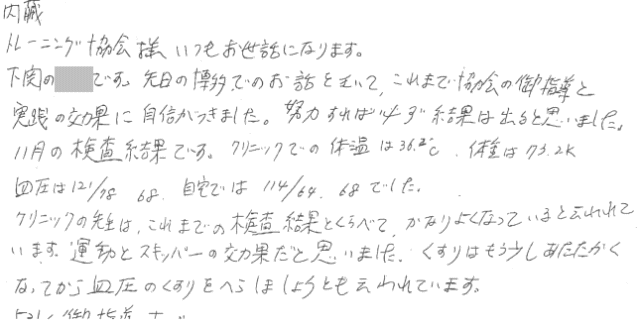 内臓
トレーニング協会様 いつもお世話になります。
下関の です。先日の博多でのお話を玄いて、これまで協会の御指導と
実践の効果に自信がつきました。努力すれば必ず結果は出ると思いました。
11月の検査結果です。クリニックでの体温は36.2℃、体重は73.2K
血圧は121/78 68、自宅では114/64、68でした。
クリニックの先生は、これまでの検査結果とくらべて、かなりよくなっていると云われて
います。運動とスキッパーの効果だと思いました。くすりはもう少しあたたかく
なってから血圧のくすりをへらしましょうとも云われています。
御指導